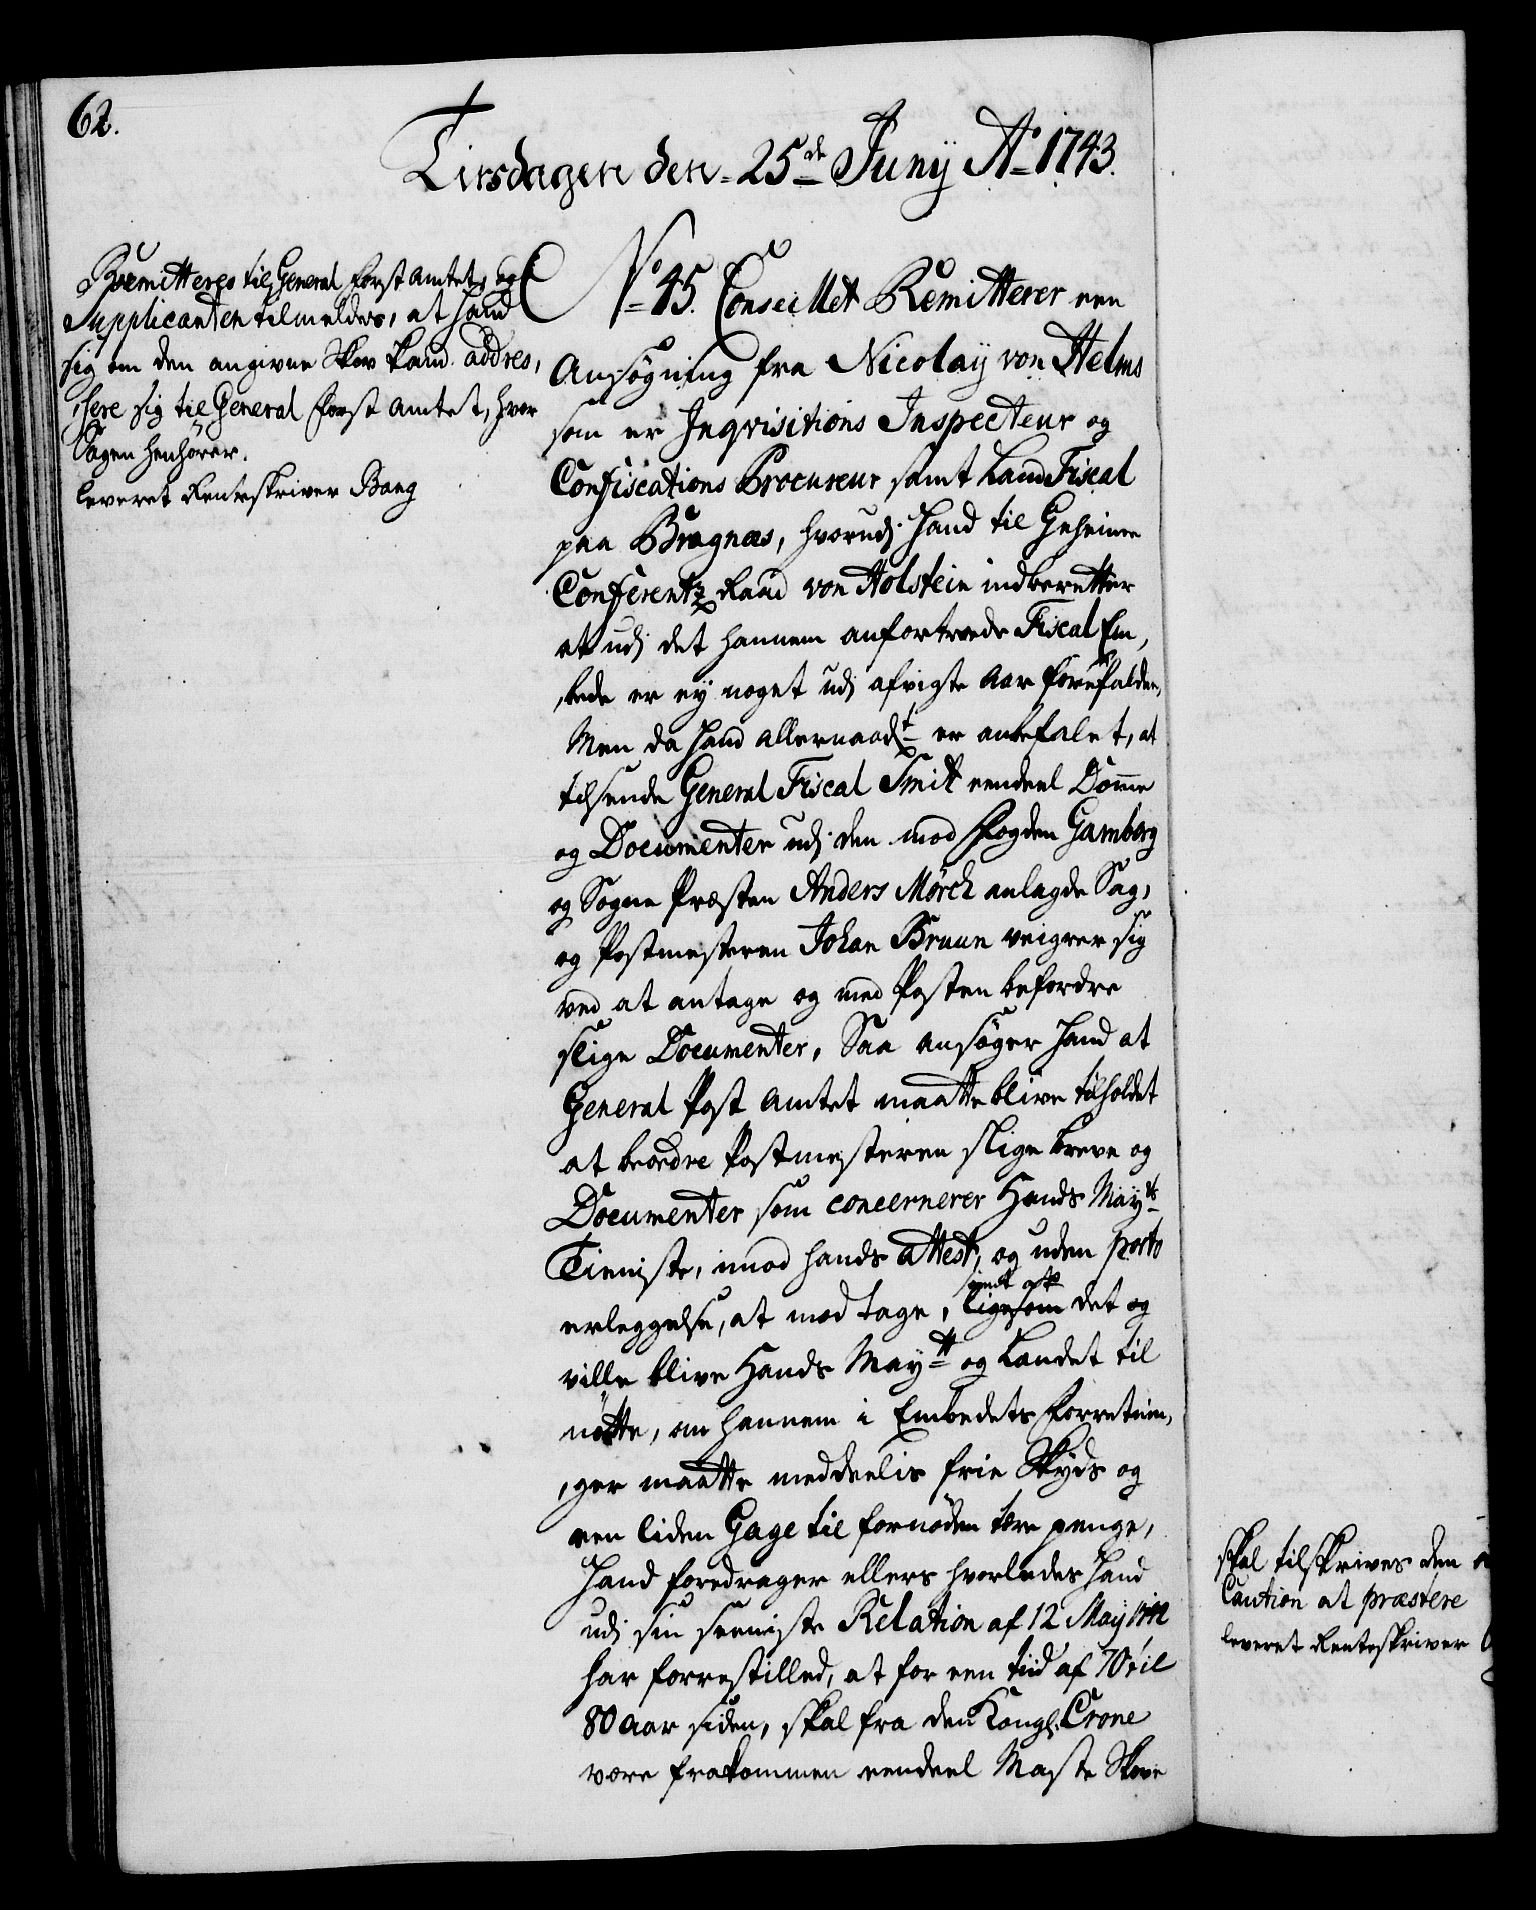 62.
Tirsdagen den 25de Junij Ao 1743.
Remitteres til General Forst Amtet, og
Supplicanten tilmeldes, at hand
sig om den angivne Skov kand addres,
,sere sig til General Forst Amtet, hvor
Sagen henhörer.
leveret Renteskriver Bang
No 45. Conseillet Remitterer een
Ansøgning fra Nicolaij von Helms
som er Inqvisitions Inspecteur og
Confiscations Procureur samt Land Fiscal
paa Bragnæs, hvorudj hand til Geheime
Conferentz Raad von Holstein indberetter
at udj det hannem anfortroede Fiscal Em,
,bede er ey noget udj afvigte Aar forefalden,
Men da hand allernaadt er anbefalet, at
tilsende General Fiscal Smit eendeel Domme
og Documenter udj den mod Fogden Gamborg
og Sogne Præsten Anders Mörch anlagde Sag,
og Postmesteren Johan Bruun veigrer sig
ved at antage og med Posten befordre
slige Documenter, Saa ansøger hand at
General Post Amtet maatte blive tilholdet
at beordre Postmesteren slige breve og
Documenter som concernerer Hands Mayts
Tieniste, imod hands attest, og uden porto
erleggelse, at mod tage, ligesom det og
ville blive Hands Maytt og Landet til
nötte, om hannem i Embedets Forretnin,
,ger maatte meddeelis frie Skyds og
een liden Gage til fornöden tære penge,
Hand foredrager ellers hvorledes hand
udj sin seeniste Relation af 12 May 1742
har forrestilled, at for een tiid af 70 til
80 Aar siden, skal fra den Kongl. Crone
være frakommen eendeel Maste Skove
skal tilskrives den
Caution at præstere
leveret Renteskriver